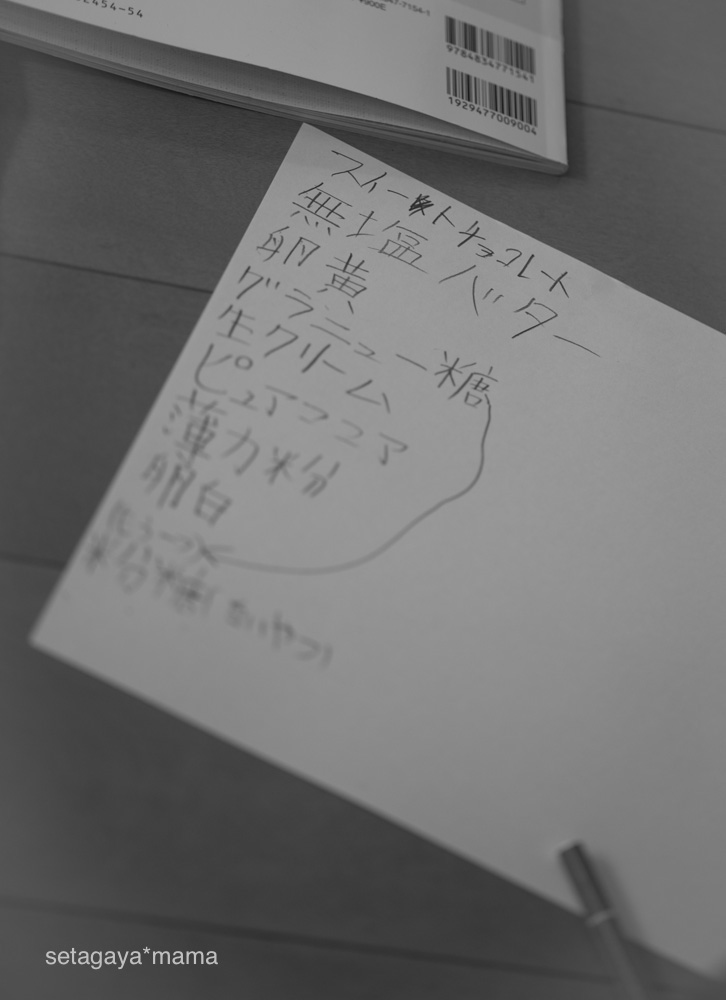 454-54
9784834771541
1929477009004
スイートチョコレート
無塩バター
卵黄
グラニュー糖
生クリーム
ピュアココア
薄力粉
卵白
setagaya*mama